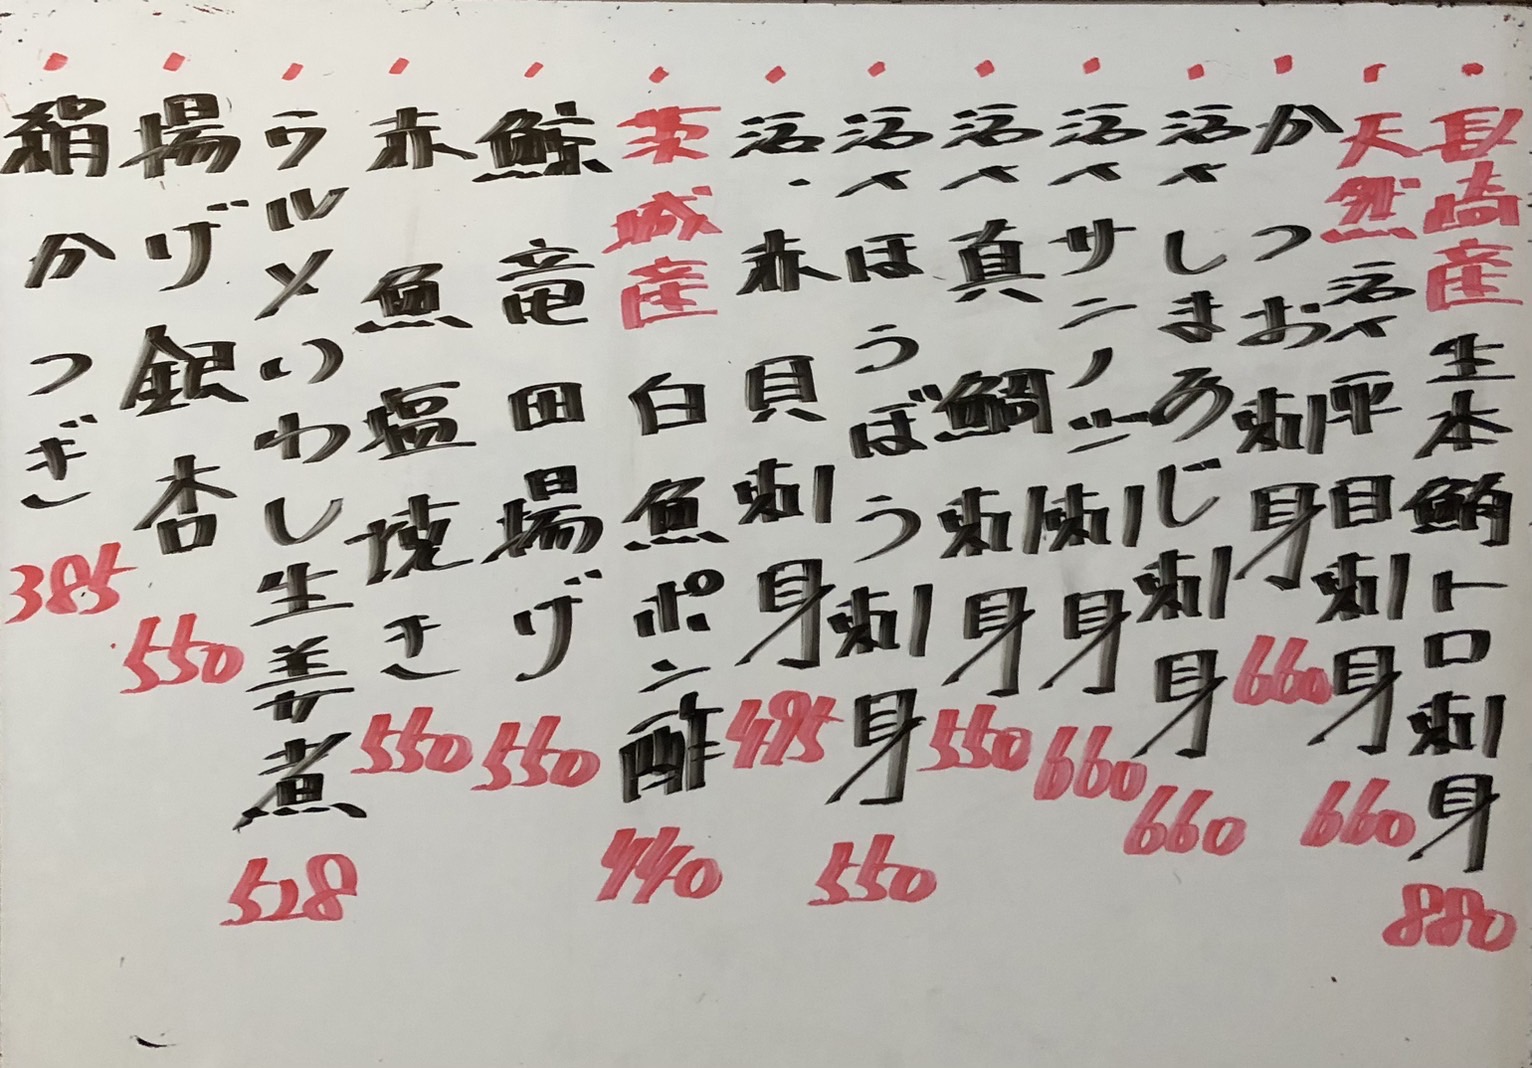 ・長崎産生本鮪トロ刺身 880
・天然活〆平目刺身 660
・かつお刺身 660
・活〆しまあじ刺身 660
・活〆サンノジ刺身 660
・活〆真鯛刺身 550
・活〆ほうぼう刺身 550
・活・赤貝刺身 495
・茨城産白魚ポン酢 440
・鯨竜田揚げ 550
・赤魚塩焼き 550
・ウルメいわし生姜煮 528
・揚げ銀杏 550
・絹かつぎ 385